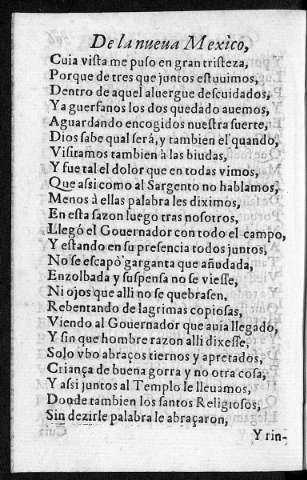 De la nueua Mexico,
Cuia vista me puso en gran tristeza,
Porque de tres que juntos estuuimos,
Dentro de aquel aluergue descuidados,
Ya guerfanos los dos quedado auemos,
Aguardando encogidos nuestra fuerte,
Dios sabe qual será, y tambien el quando,
Visitamos tambien à las biudas,
Y fue tal el dolor que en todas vimos,
Que assi como al Sargento no hablamos,
Menos à ellas palabra les diximos,
En esta sazon luego tras nosotros,
Llegó el Gouernador con todo el campo,
Y estando en su presencia todos juntos,
No se escapò garganta que añudada,
Enzolbada y suspensa no se viesse,
Ni ojos que alli no se quebrasen,
Rebentando de lagrimas copiosas,
Viendo al Gouernador que auia llegado,
Y sin que hombre razon alli dixesse,
Solo vbo abraços tiernos y apretados,
Criança de buena gorra y no otra cosa,
Y assi juntos al Templo le lleuamos,
Donde tambien los santos Religiosos,
Sin dezirle palabra le abraçaron,
Y rin-